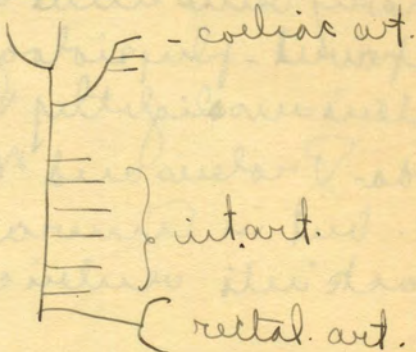 - coeliac art.
int. art.
rectal. art.